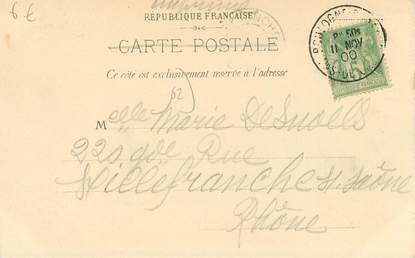 6 €
imprimé
RÉPUBLIQUE FRANÇAISE
CARTE POSTALE
Ce côté est exclusivement réservé à l'adresse
11 NOV
00
52
Melle Marie Desnoels
220 gde Rue
Villefranche s/ Saône
Rhône